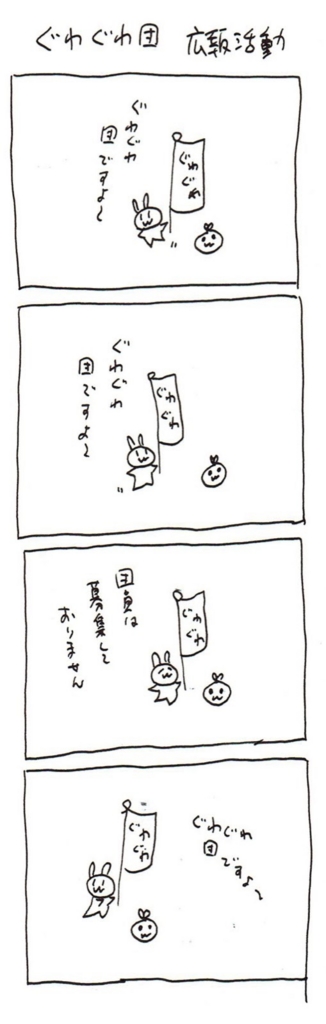 ぐわぐわ団 広報活動
ぐわぐわ
団ですよ〜
ぐわぐわ
ぐわぐわ
団ですよ〜
ぐわぐわ
団員は
募集して
おりません
ぐわぐわ
ぐわぐわ
団ですよ〜
ぐわぐわ